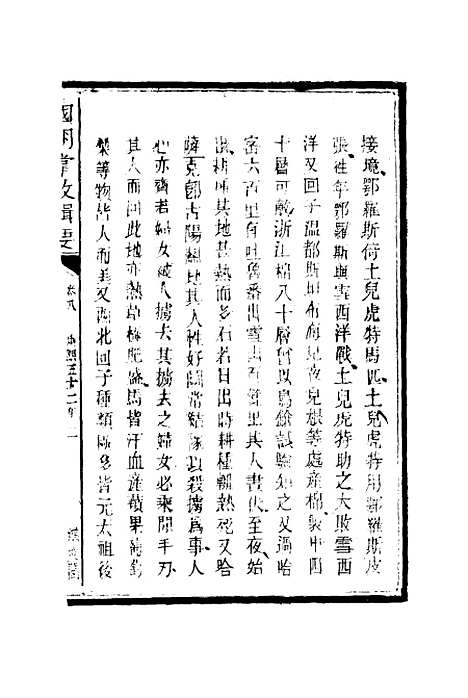 接境鄂羅斯倚土兒虎特馬匹土兒虎特用鄂羅斯皮
張往年鄂羅斯與雪西洋戰土兒虎特助之大敗雪西
洋又回子溫都斯坦布海兒夜兒根等處產棉製甲四
十層可敵浙江棉八十層何以鳥餘試驗知之又過哈
密六百里有吐魯番出雪山百里其人晝伏至夜始
出耕種其地甚熱而多石若日出時耕種輒熱死又哈
薩克即古陽關地其人性好鬬常結隊以殺擄為事人
心亦齊若婦女被人擄去其擄去之婦女必乘間手刃
其人而回此地亦熱草極肥盛馬皆汗血產蘋果
等物皆大而美又西北回子種類極多皆元太祖後
國朝掌故輯要 卷八 康熙五十二年 一